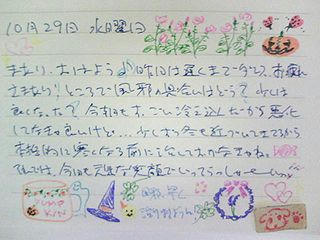 10月29日 水曜日
おはよう♪昨日は遅くまで お疲れ
さまなり!ところで風邪の具合いはどう?少しは
良くなった?今朝もすごい冷え込んだから悪化
してなきゃ良いけど…少しずつ冬も近づいてきてるから
本格的に悪くなる前に治しておかなきゃね。
それでは、今日も元気な笑顔でいってらっしゃーい
PUMP
KIN
早く